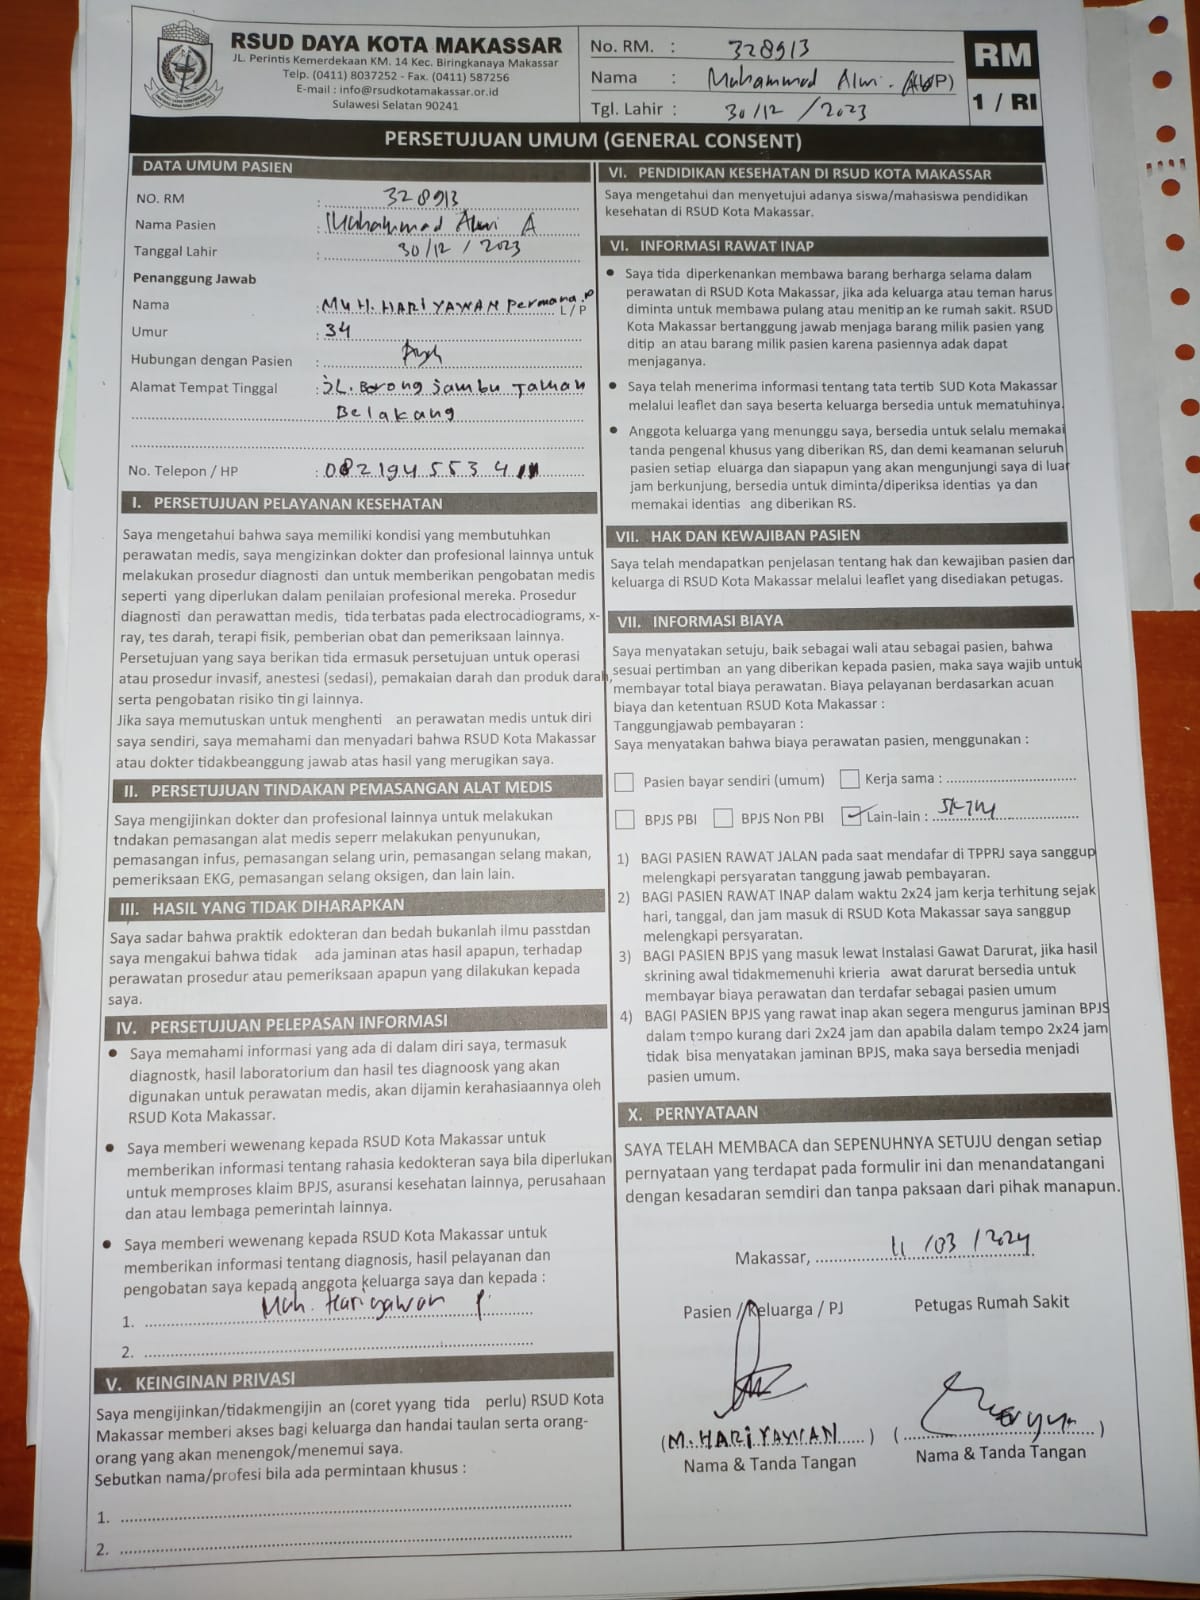 RSUD DAYA KOTA MAKASSAR
JL. Perintis Kemerdekaan KM. 14 Kec. Biringkanaya Makassar
Telp. (0411) 8037252 - Fax. (0411) 587256
E-mail : info@rsudkotamakassar.or.id
Sulawesi Selatan 90241
No. RM. : 328913
Nama : Muhammad Alwi.
Tgl. Lahir : 30/12 /2023
RM
1 / RI
PERSETUJUAN UMUM (GENERAL CONSENT)
DATA UMUM PASIEN
NO. RM : 328913
Nama Pasien : Muhammad Alwi A
Tanggal Lahir : 30/12 / 2023
Penanggung Jawab
Nama : MUH. HARIYAWAN Permana.P L/P
Umur : 34
Hubungan dengan Pasien :
Alamat Tempat Tinggal : JL. Borong Jambu Taman
Belakang
No. Telepon / HP : 082194553411
I. PERSETUJUAN PELAYANAN KESEHATAN
Saya mengetahui bahwa saya memiliki kondisi yang membutuhkan
perawatan medis, saya mengizinkan dokter dan profesional lainnya untuk
melakukan prosedur diagnosti dan untuk memberikan pengobatan medis
seperti yang diperlukan dalam penilaian profesional mereka. Prosedur
diagnosti dan perawattan medis, tida terbatas pada electrocadiograms, x-
ray, tes darah, terapi fisik, pemberian obat dan pemeriksaan lainnya.
Persetujuan yang saya berikan tida ermasuk persetujuan untuk operasi
atau prosedur invasif, anestesi (sedasi), pemakaian darah dan produk darah,
serta pengobatan risiko tin gi lainnya.
Jika saya memutuskan untuk menghenti an perawatan medis untuk diri
saya sendiri, saya memahami dan menyadari bahwa RSUD Kota Makassar
atau dokter tidakbeanggung jawab atas hasil yang merugikan saya.
II. PERSETUJUAN TINDAKAN PEMASANGAN ALAT MEDIS
Saya mengijinkan dokter dan profesional lainnya untuk melakukan
tndakan pemasangan alat medis seperr melakukan penyunukan,
pemasangan infus, pemasangan selang urin, pemasangan selang makan,
pemeriksaan EKG, pemasangan selang oksigen, dan lain lain.
III. HASIL YANG TIDAK DIHARAPKAN
Saya sadar bahwa praktik edokteran dan bedah bukanlah ilmu passtdan
saya mengakui bahwa tidak ada jaminan atas hasil apapun, terhadap
perawatan prosedur atau pemeriksaan apapun yang dilakukan kepada
saya.
IV. PERSETUJUAN PELEPASAN INFORMASI
• Saya memahami informasi yang ada di dalam diri saya, termasuk
diagnostk, hasil laboratorium dan hasil tes diagnoosk yang akan
digunakan untuk perawatan medis, akan dijamin kerahasiaannya oleh
RSUD Kota Makassar.
• Saya memberi wewenang kepada RSUD Kota Makassar untuk
memberikan informasi tentang rahasia kedokteran saya bila diperlukan
untuk memproses klaim BPJS, asuransi kesehatan lainnya, perusahaan
dan atau lembaga pemerintah lainnya.
• Saya memberi wewenang kepada RSUD Kota Makassar untuk
memberikan informasi tentang diagnosis, hasil pelayanan dan
pengobatan saya kepada anggota keluarga saya dan kepada :
1. Muh. Hariyawan P.
2.
V. KEINGINAN PRIVASI
Saya mengijinkan/tidakmengijin an (coret yyang tida perlu) RSUD Kota
Makassar memberi akses bagi keluarga dan handai taulan serta orang-
orang yang akan menengok/menemui saya.
Sebutkan nama/profesi bila ada permintaan khusus :
1.
2.
VI. PENDIDIKAN KESEHATAN DI RSUD KOTA MAKASSAR
Saya mengetahui dan menyetujui adanya siswa/mahasiswa pendidikan
kesehatan di RSUD Kota Makassar.
VI. INFORMASI RAWAT INAP
• Saya tida diperkenankan membawa barang berharga selama dalam
perawatan di RSUD Kota Makassar, jika ada keluarga atau teman harus
diminta untuk membawa pulang atau menitip an ke rumah sakit. RSUD
Kota Makassar bertanggung jawab menjaga barang milik pasien yang
ditip an atau barang milik pasien karena pasiennya adak dapat
menjaganya.
• Saya telah menerima informasi tentang tata tertib SUD Kota Makassar
melalui leaflet dan saya beserta keluarga bersedia untuk mematuhinya.
• Anggota keluarga yang menunggu saya, bersedia untuk selalu memakai
tanda pengenal khusus yang diberikan RS, dan demi keamanan seluruh
pasien setiap eluarga dan siapapun yang akan mengunjungi saya di luar
jam berkunjung, bersedia untuk diminta/diperiksa identias ya dan
memakai identias ang diberikan RS.
VII. HAK DAN KEWAJIBAN PASIEN
Saya telah mendapatkan penjelasan tentang hak dan kewajiban pasien dan
keluarga di RSUD Kota Makassar melalui leaflet yang disediakan petugas.
VII. INFORMASI BIAYA
Saya menyatakan setuju, baik sebagai wali atau sebagai pasien, bahwa
sesuai pertimban an yang diberikan kepada pasien, maka saya wajib untuk
membayar total biaya perawatan. Biaya pelayanan berdasarkan acuan
biaya dan ketentuan RSUD Kota Makassar :
Tanggungjawab pembayaran :
Saya menyatakan bahwa biaya perawatan pasien, menggunakan :
Pasien bayar sendiri (umum) Kerja sama :
BPJS PBI BPJS Non PBI Lain-lain :
1) BAGI PASIEN RAWAT JALAN pada saat mendafar di TPPRJ saya sanggup
melengkapi persyaratan tanggung jawab pembayaran.
2) BAGI PASIEN RAWAT INAP dalam waktu 2x24 jam kerja terhitung sejak
hari, tanggal, dan jam masuk di RSUD Kota Makassar saya sanggup
melengkapi persyaratan.
3) BAGI PASIEN BPJS yang masuk lewat Instalasi Gawat Darurat, jika hasil
skrining awal tidakmemenuhi krieria awat darurat bersedia untuk
membayar biaya perawatan dan terdafar sebagai pasien umum
4) BAGI PASIEN BPJS yang rawat inap akan segera mengurus jaminan BPJS
dalam tempo kurang dari 2x24 jam dan apabila dalam tempo 2x24 jam
tidak bisa menyatakan jaminan BPJS, maka saya bersedia menjadi
pasien umum.
X. PERNYATAAN
SAYA TELAH MEMBACA dan SEPENUHNYA SETUJU dengan setiap
pernyataan yang terdapat pada formulir ini dan menandatangani
dengan kesadaran semdiri dan tanpa paksaan dari pihak manapun.
Makassar, 11 /03 /2024
Pasien / Keluarga / PJ Petugas Rumah Sakit
(M. HARIYAWAN) ( )
Nama & Tanda Tangan Nama & Tanda Tangan